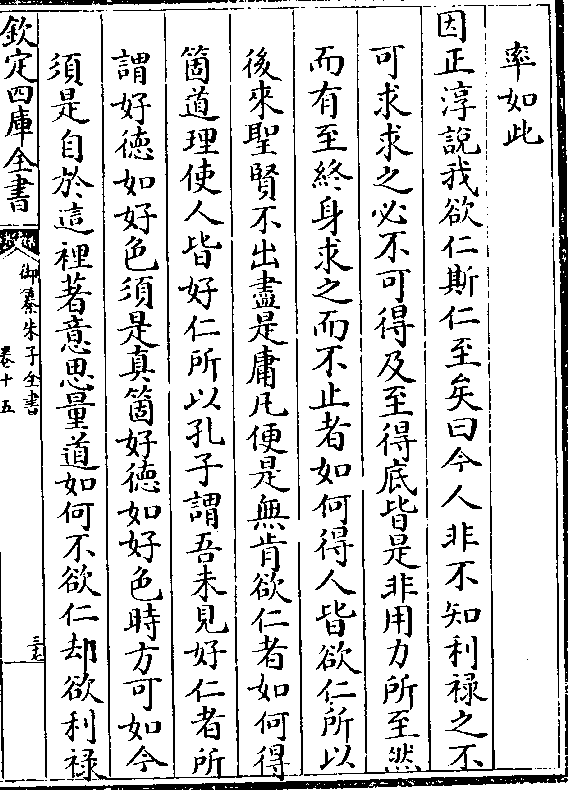 率如此
因正淳說我欲仁斯仁至矣曰今人非不知利祿之不
可求求之必不可得及至得底皆是非用力所至然
而有至終身求之而不止者如何得人皆欲仁所以
後來聖賢不出盡是庸凡便是無肯欲仁者如何得
箇道理使人皆好仁所以孔子謂吾未見好仁者所
謂好德如好色須是真箇好德如好色時方可如今
須是自於這裡著意思量道如何不欲仁却欲利祿
欽定四庫全書
御纂朱子全書
卷十五